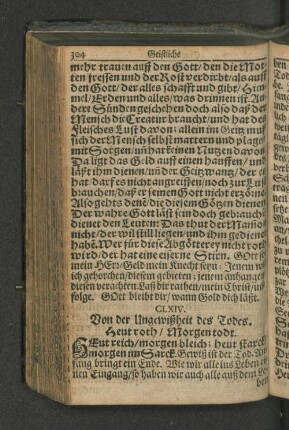 304 Geistliche
mehr trauen auff den Gott / den die Mot-
ten fressen und der Rost verdirbt / als auff
den Gott / der alles schafft und gibt / Him-
mel / Erden und alles / was drinnen ist. An-
dere Sünden geschehen doch also daß der
Mensch die Creatur braucht / und hat des
Fleisches Lust davon: allein im Geitz muß
sich der Mensch selbst martern und plagen
mit Sorgen, uñ hat kein Nutzen davon
Da ligt das Geld auff einen hauffen / und
läßt ihm dienen / uñ der Geitzwantz / der es
hat darf es nicht angreiffen / noch zur Lust
brauchen / daß er seinen Gott nicht erzörne
Also gehts denē die diesem Götzen dienen
Der wahre Gott läst sein doch gebrauchē
dienet den Leutē: Das thut der Mam̃on
nicht / der wil still ligen / und ihm gedienet
habē. Wer für diese Abgötterey nicht roth
wird / der hat eine eiserne Stirn. Gott so
mein HErr / Geld mein Knecht seyn: Jenem wil
ich gehorchen / diesem gebieten: jenem anhangen
diesen verachten. Laß dir rathen / mein Christ / und
folge. GOtt bleibt dir / wann Gold dich läßt.
CLXIV.
Von der Ungewißheit des Todes.
Heut roth / Morgen todt.
HEut reich / morgen bleich: heut starck
morgen im Sarck. Gewiß ist der Tod. An-
fang bringt ein Ende. Wie wir alle ins Leben ei-
nen Eingang / so haben wir auch alle auß dem Le-
ben